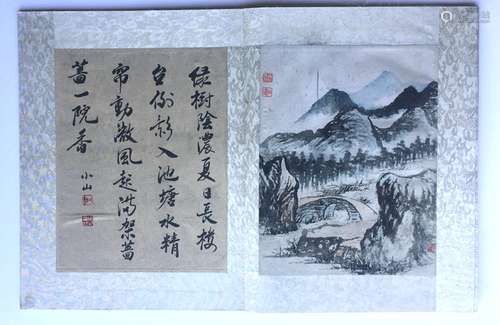 綠樹陰濃夏日長樓
台倒影入池塘水精
帘動微風起滿架薔
薔一院香
小山